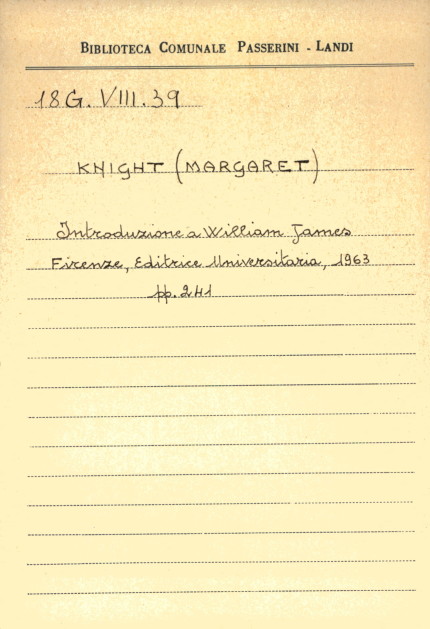 BIBLIOTECA COMUNALE PASSERINI - LANDI
18G. VIII. 39
KNIGHT (MARGARET)
Introduzione a William James
Firenze, Editrice Universitaria, 1963
pp. 241